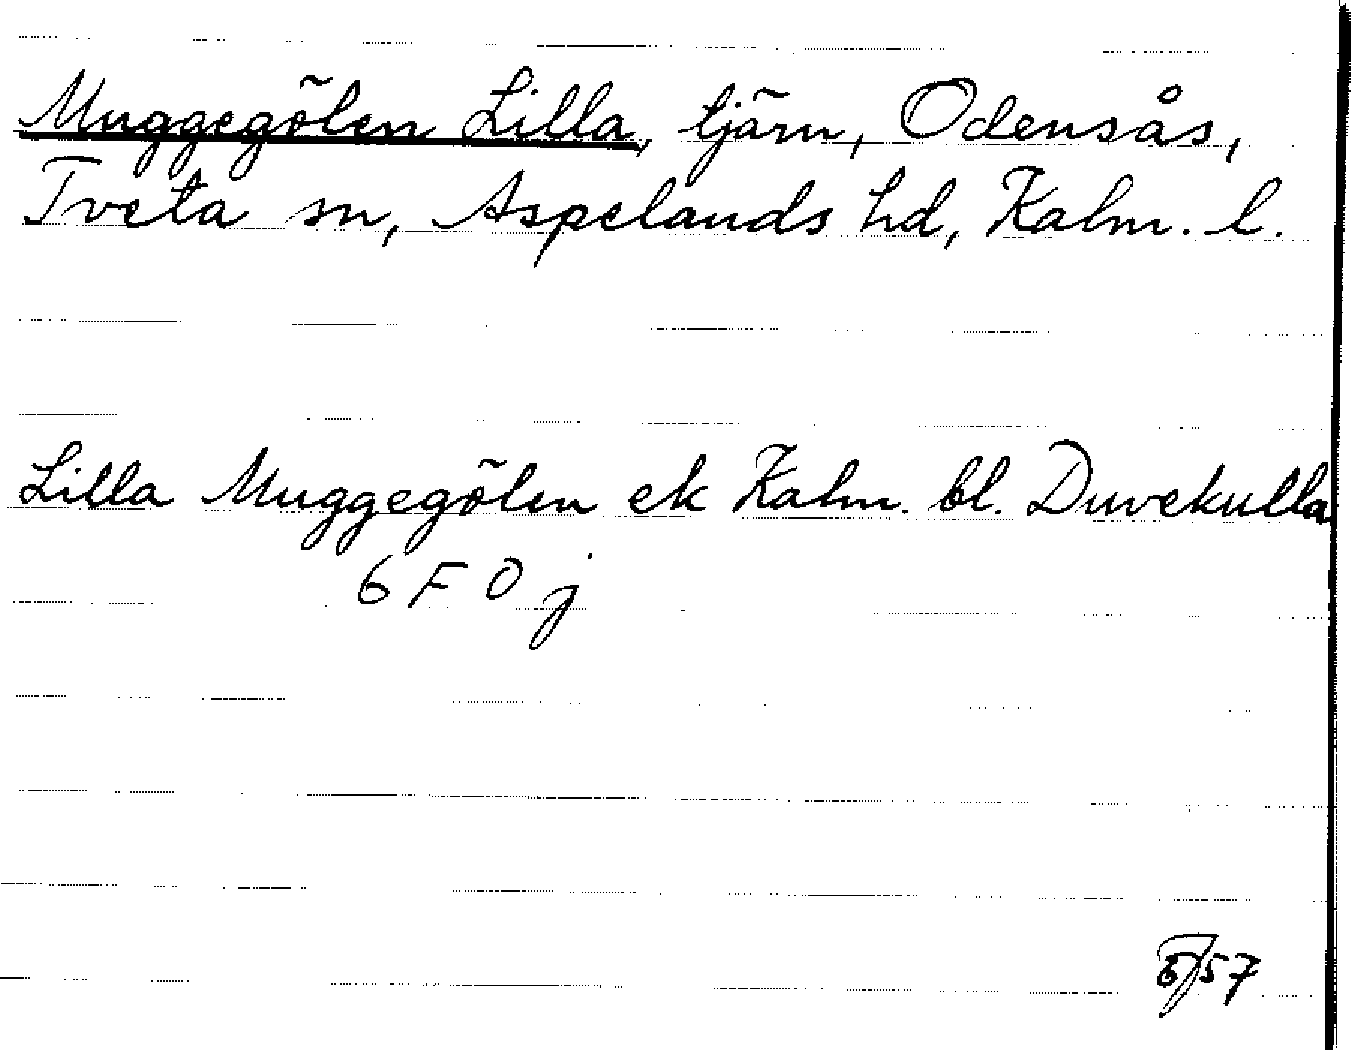 Muggegölen Lilla, tjärn, Odensås,
Tveta sn, Aspelands hd, Kalm. l.
Lilla Muggegölen ek Kalm. bl. Duvekulla
6 F 0 j